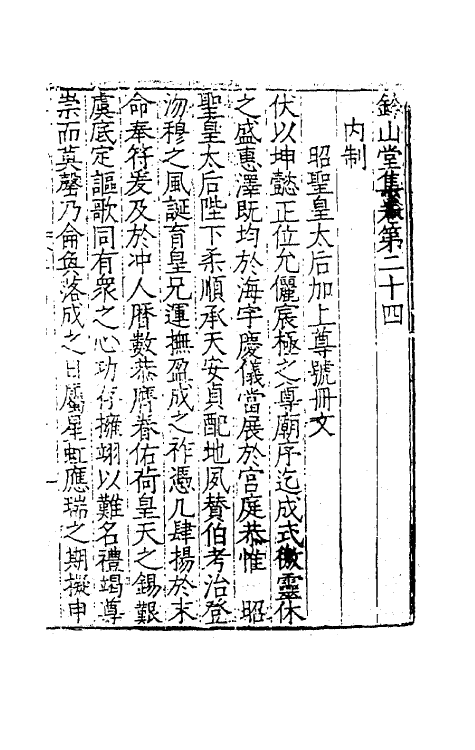 鈐山堂集卷第二十四
内制
昭聖皇太后加上尊號冊文
伏以坤懿正位允儷宸極之尊廟序迄成式徽靈休
之盛惠澤既均於海宇慶儀當展於宫庭恭惟　昭
聖皇太后陛下柔順承天安貞配地夙賛伯考治登
沕穆之風誕育皇兄運撫盈成之祚憑几肆揚於末
命奉符爰及於冲人暦數恭膺眷佑荷皇天之錫艱
虞底定謳歌同有衆之心功存擁翊以難名禮竭尊
崇而莫罄乃侖奐落成之日屬星虹應瑞之期擬申